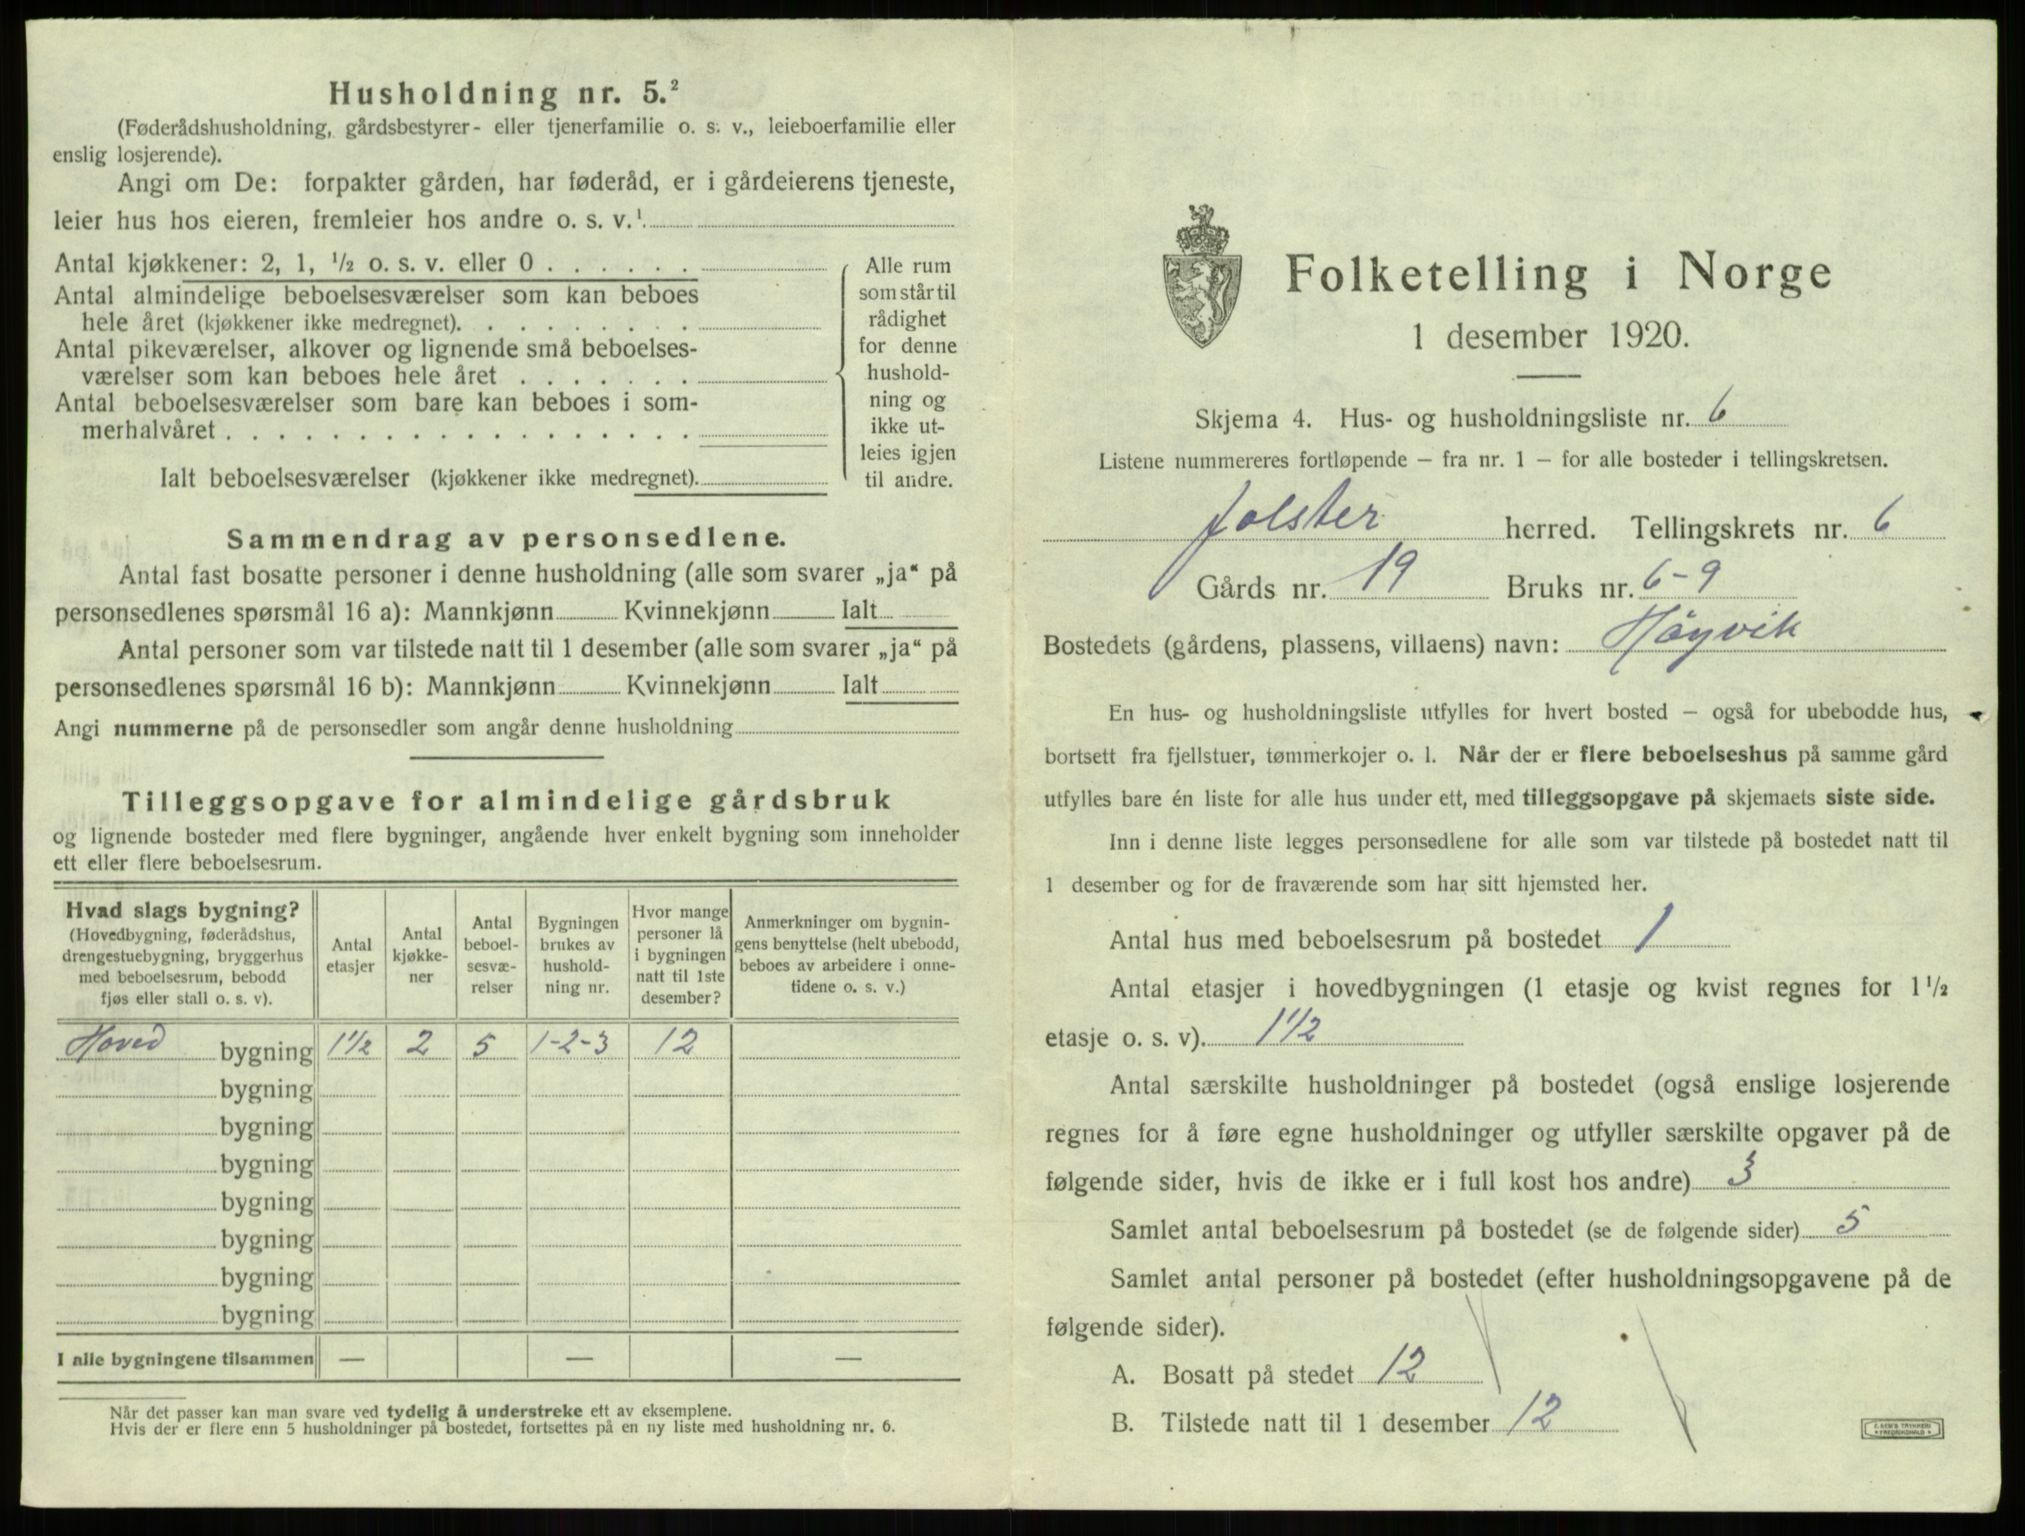 Husholdning nr. 5.²
(Føderådshusholdning, gårdsbestyrer- eller tjenerfamilie o. s. v., leieboerfamilie eller
enslig losjerende).
Angi om De: forpakter gården, har føderåd, er i gårdeierens tjeneste,
leier hus hos eieren, fremleier hos andre o. s. v.¹
Antal kjøkkener: 2, 1, ½ o. s. v. eller 0 . . . . . .
Antal almindelige beboelsesværelser som kan beboes
hele året (kjøkkener ikke medregnet). . . . . . . . .
Antal pikeværelser, alkover og lignende små beboelses-
værelser som kan beboes hele året . . . . . . .
Antal beboelsesværelser som bare kan beboes i som-
merhalvåret . . . . . . . . . . . . . . . . . .
Ialt beboelsesværelser (kjøkkener ikke medregnet).
Alle rum
som står til
rådighet
for denne
hushold-
ning og
ikke ut-
leies igjen
til andre.
Sammendrag av personsedlene.
Antal fast bosatte personer i denne husholdning (alle som svarer „ja“ på
personsedlenes spørsmål 16 a): Mannkjønn Kvinnekjønn Ialt
Antal personer som var tilstede natt til 1 desember (alle som svarer „ja“ på
personsedlenes spørsmål 16 b): Mannkjønn Kvinnekjønn Ialt
Angi nummerne på de personsedler som angår denne husholdning
Tilleggsopgave for almindelige gårdsbruk
og lignende bosteder med flere bygninger, angående hver enkelt bygning som inneholder
ett eller flere beboelsesrum.
Hvad slags bygning?
(Hovedbygning, føderådshus,
drengestuebygning, bryggerhus
med beboelsesrum, bebodd
fjøs eller stall o. s. v).
Antal
etasjer
Antal
kjøkke-
ner
Antal
beboel-
sesvæ-
relser
Bygningen
brukes av
hushold-
ning nr.
Hvor mange
personer lå
i bygningen
natt til 1ste
desember?
Anmerkninger om bygnin-
gens benyttelse (helt ubebodd,
beboes av arbeidere i onne-
tidene o. s. v.)
Hoved bygning 1½ 2 5 1-2-3 12
bygning
bygning
bygning
bygning
bygning
bygning
bygning
I alle bygningene tilsammen — — —
Når det passer kan man svare ved tydelig å understreke ett av eksemplene.
Hvis der er flere enn 5 husholdninger på bostedet, fortsettes på en ny liste med husholdning nr. 6.
Folketelling i Norge
1 desember 1920.
Skjema 4. Hus- og husholdningsliste nr. 6
Listene nummereres fortløpende – fra nr. 1 – for alle bosteder i tellingskretsen.
Jølster herred. Tellingskrets nr. 6
Gårds nr. 19 Bruks nr. 6-9
Bostedets (gårdens, plassens, villaens) navn: Høyvik
En hus- og husholdningsliste utfylles for hvert bosted – også for ubebodde hus,
bortsett fra fjellstuer, tømmerkojer o. l. Når der er flere beboelseshus på samme gård
utfylles bare én liste for alle hus under ett, med tilleggsopgave på skjemaets siste side.
Inn i denne liste legges personsedlene for alle som var tilstede på bostedet natt til
1 desember og for de fraværende som har sitt hjemsted her.
Antal hus med beboelsesrum på bostedet 1
Antal etasjer i hovedbygningen (1 etasje og kvist regnes for 1½
etasje o. s. v). 1½
Antal særskilte husholdninger på bostedet (også enslige losjerende
regnes for å føre egne husholdninger og utfyller særskilte opgaver på de
følgende sider, hvis de ikke er i full kost hos andre) 3
Samlet antal beboelsesrum på bostedet (se de følgende sider) 5
Samlet antal personer på bostedet (efter husholdningsopgavene på de
følgende sider).
A. Bosatt på stedet 12
B. Tilstede natt til 1 desember 12